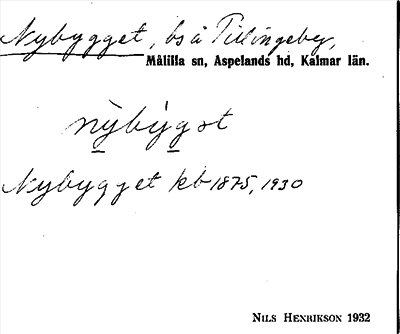 Nybygget, bs å Tillingeby,
Målilla sn, Aspelands hd, Kalmar län.
nỳbýgət
Nybygget kb 1875, 1930
NILS HENRIKSON 1932